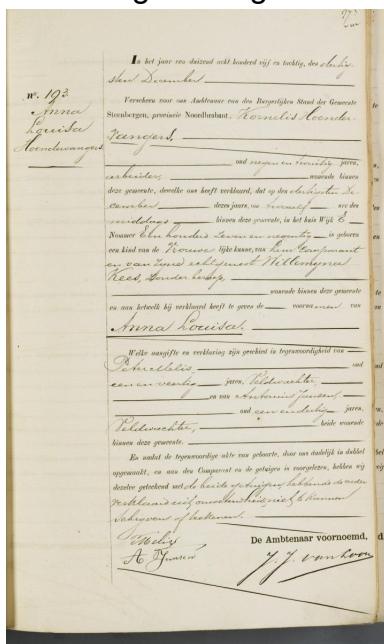 n°. 193
Anna
Louisa
Hoenderwangers
In het jaar een duizend acht honderd vijf en tachtig, den dertig-
sten December
Verscheen voor ons Ambtenaar van den Burgerlijken Stand der Gemeente
Steenbergen, provincie Noordbrabant, Kornelis Hoender-
wangers,
oud negen en twintig jaren,
arbeider, wonende binnen
deze gemeente, dewelke ons heeft verklaard, dat op den dertigsten De-
cember dezes jaars, ten twaalf ure des
middags binnen deze gemeente, in het huis Wijk E
Nommer Een honderd zeven en negentig is geboren
een kind van de Vrouwelijke kunne, van hem Comparant
en van zijne echtgenoot Willemyna
Kees, zonder beroep,
wonende binnen deze gemeente
en aan hetwelk hij verklaard heeft te geven de voornamen van
Anna Louisa.
Welke aangifte en verklaring zijn geschied in tegenwoordigheid van
Peter Melis, oud
een en veertig jaren, Veldwachter,
en van Antonius Jansen,
oud een en dertig jaren,
Veldwachter, beide wonende
binnen deze gemeente.
En omdat de tegenwoordige akte van geboorte, door ons dadelijk in dubbel
opgemaakt, en aan den Comparant en de getuigen is voorgelezen, hebben wij
dezelve geteekend met de beide getuigen, hebbende de vader
verklaard uit onwetendheid niet te kunnen
schrijven of teekenen.
Melis
A Jansen
De Ambtenaar voornoemd,
J. J. van Loon